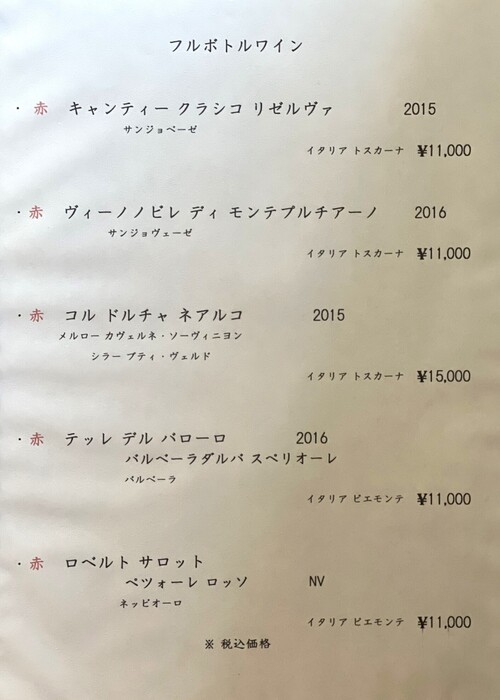 フルボトルワイン
・ 赤 キャンティー クラシコ リゼルヴァ 2015
サンジョベーゼ
イタリア トスカーナ ¥11,000
・ 赤 ヴィーノノビレ ディ モンテプルチアーノ 2016
サンジョヴェーゼ
イタリア トスカーナ ¥11,000
・ 赤 コル ドルチャ ネアルコ 2015
メルロー カヴェルネ・ソーヴィニヨン
シラー プティ・ヴェルド
イタリア トスカーナ ¥15,000
・ 赤 テッレ デル バローロ 2016
バルベーラダルバ スペリオーレ
バルベーラ
イタリア ピエモンテ ¥11,000
・ 赤 ロベルト サロット
ペツォーレ ロッソ NV
ネッビオーロ
イタリア ピエモンテ ¥11,000
※ 税込価格